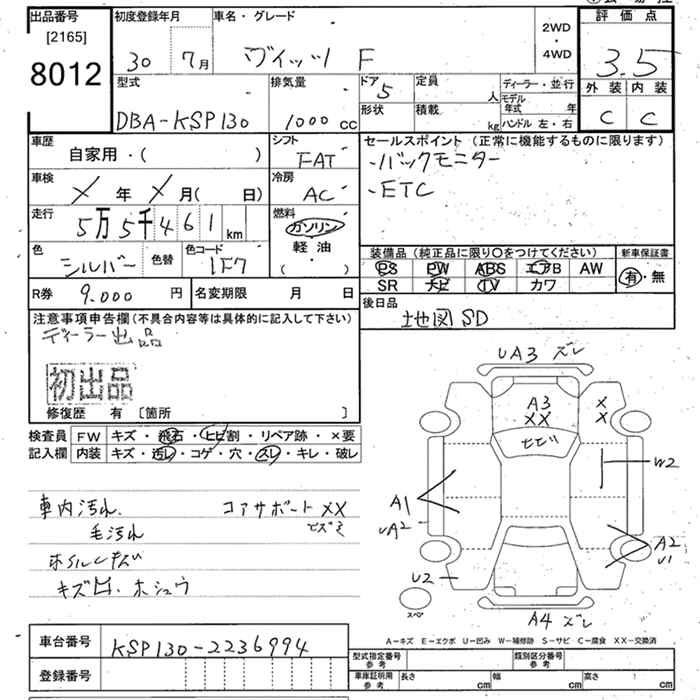 出品番号
[2165]
8012
初度登録年月
30 7月
車名・グレード
ヴィッツ F
2WD
・
4WD
評価点
3.5
外装 内装
C C
型式
DBA-KSP130
排気量
1000 cc
ドア
5
定員
人
形状
積載
kg
ディーラー・並行
モデル年式 年
ハンドル 左・右
車歴
自家用・( )
シフト
FAT
車検
× 年 × 月( 日)
冷房
AC
走行
5万5千461 km
燃料
ガソリン
軽油
( )
色
シルバー
色替
色コード
1F7
R券
9.000 円
名変期限 月 日
セールスポイント (正常に機能するものに限ります)
・バックモニター
・ETC
装備品 (純正品に限り○をつけてください)
PS PW ABS エアB AW
SR ナビ TV カワ
新車保証書
有・無
後日品
地図SD
注意事項申告欄 (不具合内容等は具体的に記入して下さい)
ディーラー出品
初出品
修復歴 有 [箇所 ]
検査員
記入欄
FW キズ・飛石・ヒビ割・リペア跡・×要
内装 キズ・汚レ・コゲ・穴・スレ・キレ・破レ
車内汚れ
毛汚れ
キズ凹、ホシュウ
コアサポートXX
UA3 ズレ
A3
XX
ヒビ
X
X
W2
A1
UA2
A2
U1
U2
スペア
A4 ズレ
A-キズ E-エクボ U-凹み W-補修跡 S-サビ C-腐食 XX-交換済
車台番号
KSP130-2236994
登録番号
型式指定番号
参考
類別区分番号
参考
車庫証明用
参考
長さ cm
幅 cm
高さ cm